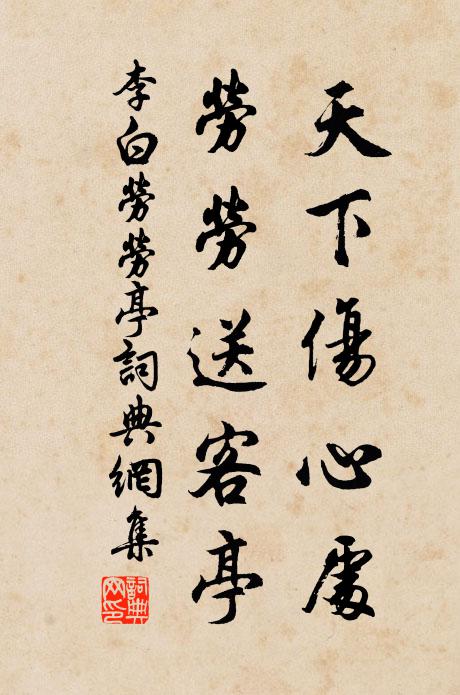 天下傷心處
勞勞送客亭
李白勞勞亭詞典網集
詞典網印